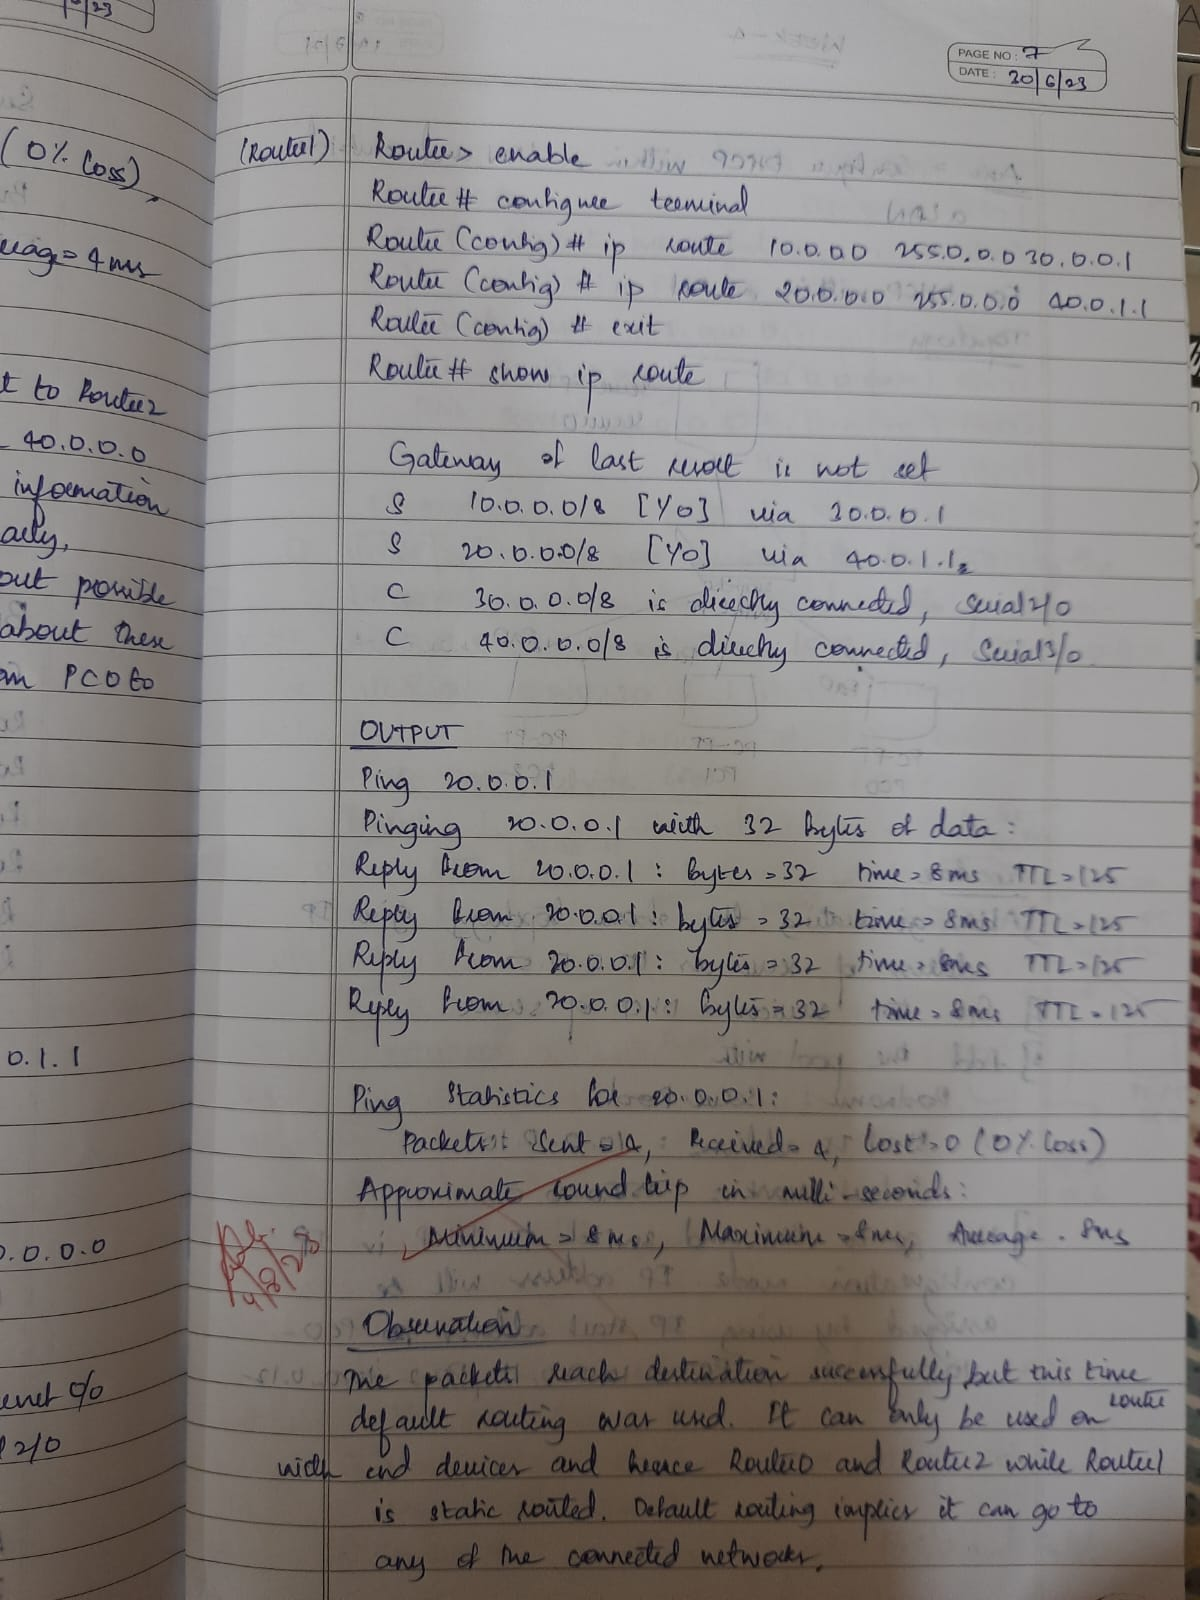 PAGE NO: 7
DATE: 20/6/23
(0% loss),
= 4ms
t to Router2
40.0.0.0
information
out possible
about these
PC0 to
0.1.1
0.0.0.0
2/0
(Router1) Router> enable
Router# configure terminal
Router (config)# ip route 10.0.0.0 255.0.0.0 30.0.0.1
Router (config) # ip route 20.0.0.0 255.0.0.0 40.0.1.1
Router (config) # exit
Router# show ip route
Gateway of last resort is not set
S 10.0.0.0/8 [1/0] via 30.0.0.1
S 20.0.0.0/8 [1/0] via 40.0.1.1
C 30.0.0.0/8 is directly connected, Serial2/0
C 40.0.0.0/8 is directly connected, Serial3/0
OUTPUT
Ping 20.0.0.1
Pinging 20.0.0.1 with 32 bytes of data:
Reply from 20.0.0.1: bytes=32 time=8ms TTL=125
Reply from 20.0.0.1: bytes=32 time=8ms TTL=125
Reply from 20.0.0.1: bytes=32 time=8ms TTL=125
Reply from 20.0.0.1: bytes=32 time=8ms TTL=125
Ping Statistics for 20.0.0.1:
Packets: Sent = 4, Received = 4, Lost = 0 (0% loss)
Approximate round trip in milli-seconds:
Minimum = 8ms, Maximum = 8ms, Average = 8ms
Observation
The packets reach destination successfully but this time
default routing was used. It can only be used on router
with end devices and hence Router0 and Router2 while Router1
is static routed. Default routing implies it can go to
any of the connected networks.